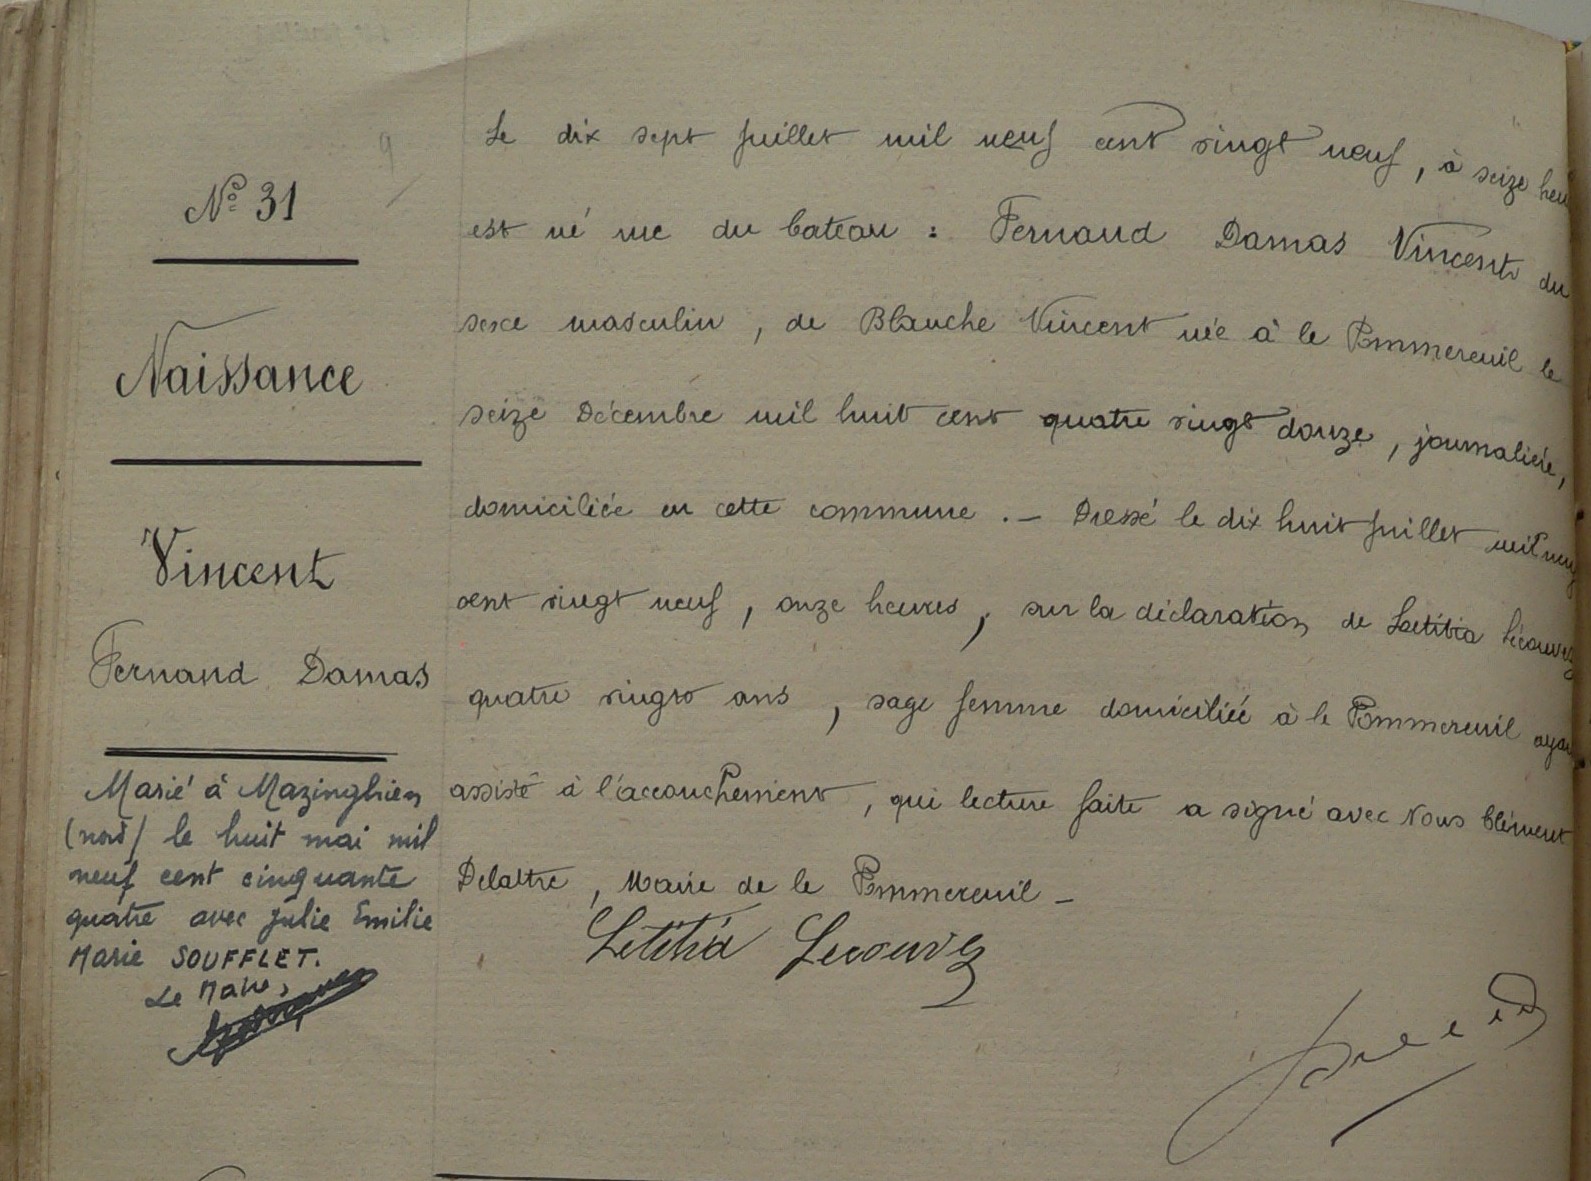 Nº 31
Naissance
Vincent
Fernand Damas
Marié à Mazinghien
(nord) le huit mai mil
neuf cent cinquante
quatre avec Julie Emilie
Marie SOUFFLET.
Le Maire,
Le dix sept Juillet mil neuf cent vingt neuf, à seize heu
est né rue du bateau : Fernand Damas Vincent du
sexe masculin, de Blanche Vincent née à le Pommereuil le
seize Décembre mil huit cent quatre vingt douze, journalière,
domiciliée en cette commune . — Dressé le dix huit Juillet mil neuf
cent vingt neuf, onze heures, sur la déclaration de Laetitia Lécouvez
quatre vingts ans, sage femme domiciliée à le Pommereuil ayan
assisté à l'accouchement, qui lecture faite a signé avec Nous Clément
Delattre, Maire de le Pommereuil —
Létitia Lecouvez